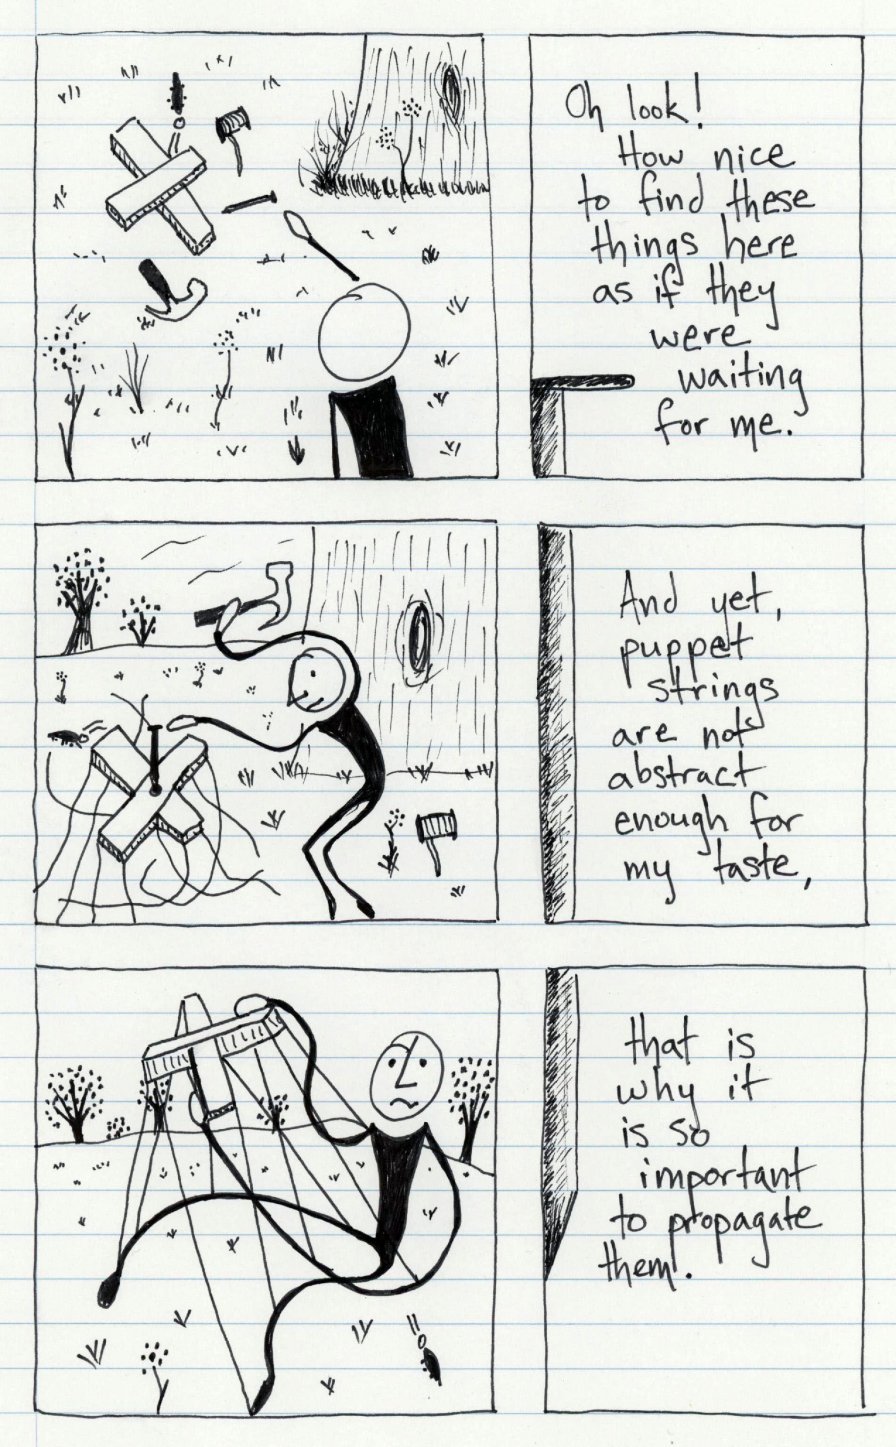 Oh look!
How nice
to find these
things here
as if they
were
waiting
for me.
And yet,
puppet
strings
are not
abstract
enough for
my taste,
that is
why it
is so
important
to propagate
them.